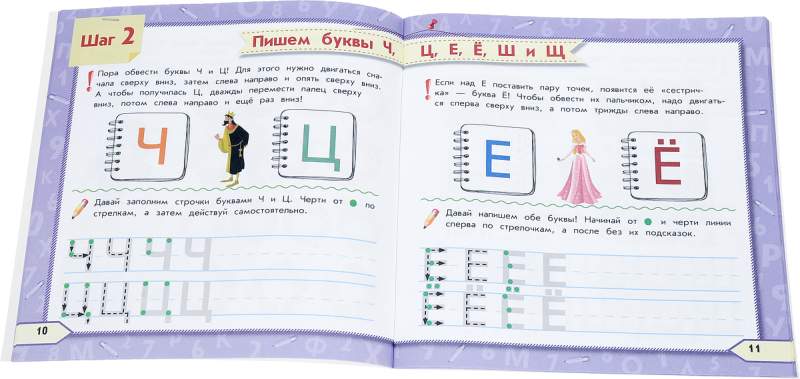 Шаг 2
Пишем буквы Ч,
Пора обвести буквы Ч и Ц! Для этого нужно двигаться сна-
чала сверху вниз, затем слева направо и опять сверху вниз.
А чтобы получилась Ц, дважды перемести палец сверху
вниз, потом слева направо и ещё раз вниз!
Ч
Ц
Давай заполним строчки буквами Ч и Ц. Черти от по
стрелкам, а затем действуй самостоятельно.
Ч Ч Ч Ч
Ц Ц Ц Ц
10
Ц, Е, Ё, Ш и Щ
Если над Е поставить пару точек, появится её «сестрич-
ка» — буква Ё! Чтобы обвести их пальчиком, надо двигать-
ся сперва сверху вниз, а потом трижды слева направо.
Е
Ё
Давай напишем обе буквы! Начинай от и черти линии
сперва по стрелочкам, а после без их подсказок.
Е Е Е Е
Ё Ё Ё Ё
11